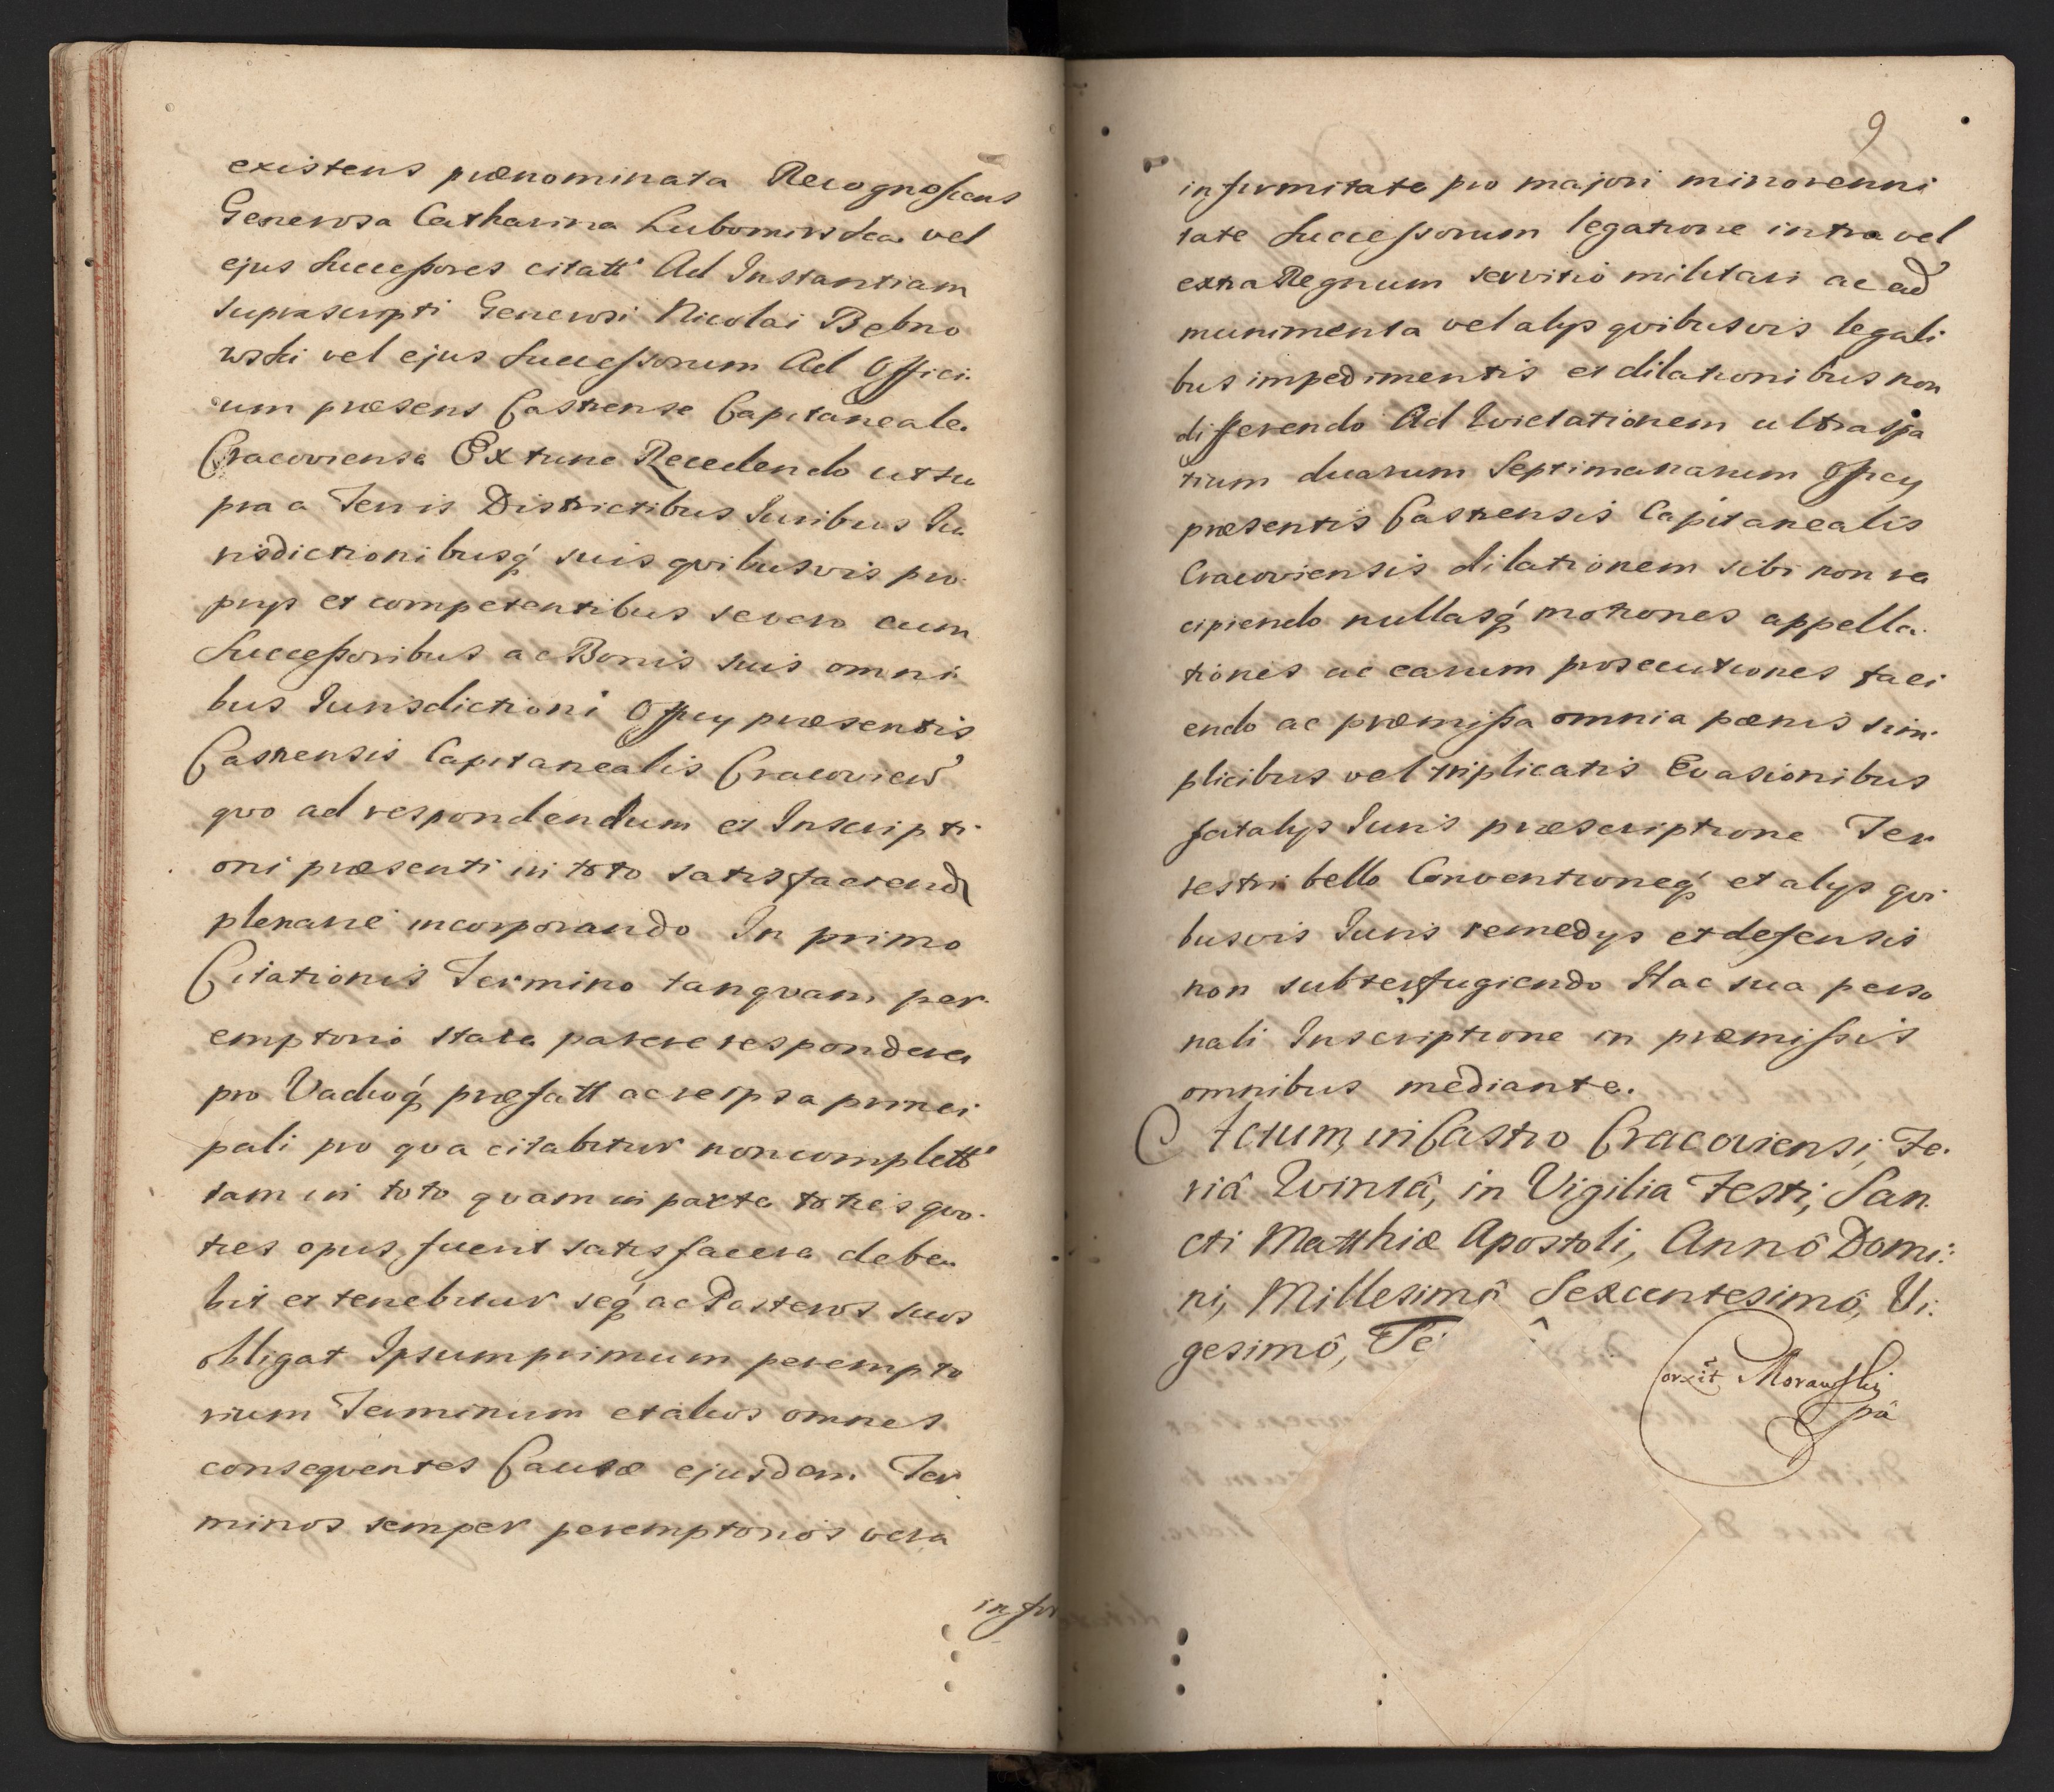 existens prænominata Recognoscens
Generosa Catharina Lubomirska vel
ejus Successores citatt' Ad Instantiam
suprascripti Generosi Nicolai Bebno
wski vel ejus Successorum Ad Offici
um præsens Castrense Capitaneale
Cracoviense Ex tunc Recedendo ut su
pra a Terris Districtibus Iuribus Iu
risdictionibusq́ suis qvibusvis pro
prys et competentibus se vero cum
Successoribus ac Bonis suis omni
bus Iurisdictioni Officy præsentis
Castrensis Capitanealis Cracovien'
qvo ad respondendum et Inscripti
oni præsenti in toto satisfaciend
plenarie incorporando In primo
Citationis Termino tanqvam per
emptorio stare parere respondere
pro Vadioq́ præfatt ac re ipsa princi
pali pro qva citabitur non complett'
tam in toto qvam in parte toties qvo
ties opus fuerit satisfacere debe
bit et tenebitur seq́ ac Posteros suos
obligat Ipsum primum perempto
rium Terminum et alios omnes
conseqventes Causæ ejusdem Ter
minos semper peremptorios vera
infir
9
infirmitate pro majori minorenni
tate Successorum legatione intra vel
extra Regnum servitio militari ac ad
munimenta vel alys qvibusvis legali
bus impedimentis et dilationibus non
differendo Ad Evictationem ultra spa
tium duarum Septimanarum Officy
præsentis Castrensis Capitanealis
Cracoviensis dilationem sibi non re
cipiendo nullasq́ motiones appella
tiones ac earum prosecutiones faci
endo ac præmissa omnia pœnis sim
plicibus vel triplicatis Evasionibus
fatalys Iuris præscriptione Ter
restri bello Conventioneq́ et alys qvi
busvis Iuris remedys et defensis
non subterfugiendo Hac sua perso
nali Inscriptione in præmissis
omnibus mediante.
Actum in Castro Cracoviensi, Fe
riâ Qvintâ, in Vigilia Festi, San
cti Matthiæ Apostoli, Annô Domi:
ni, Millesimô Sexcentesimô, Vi:
gesimô, Te
Corxit Morawski